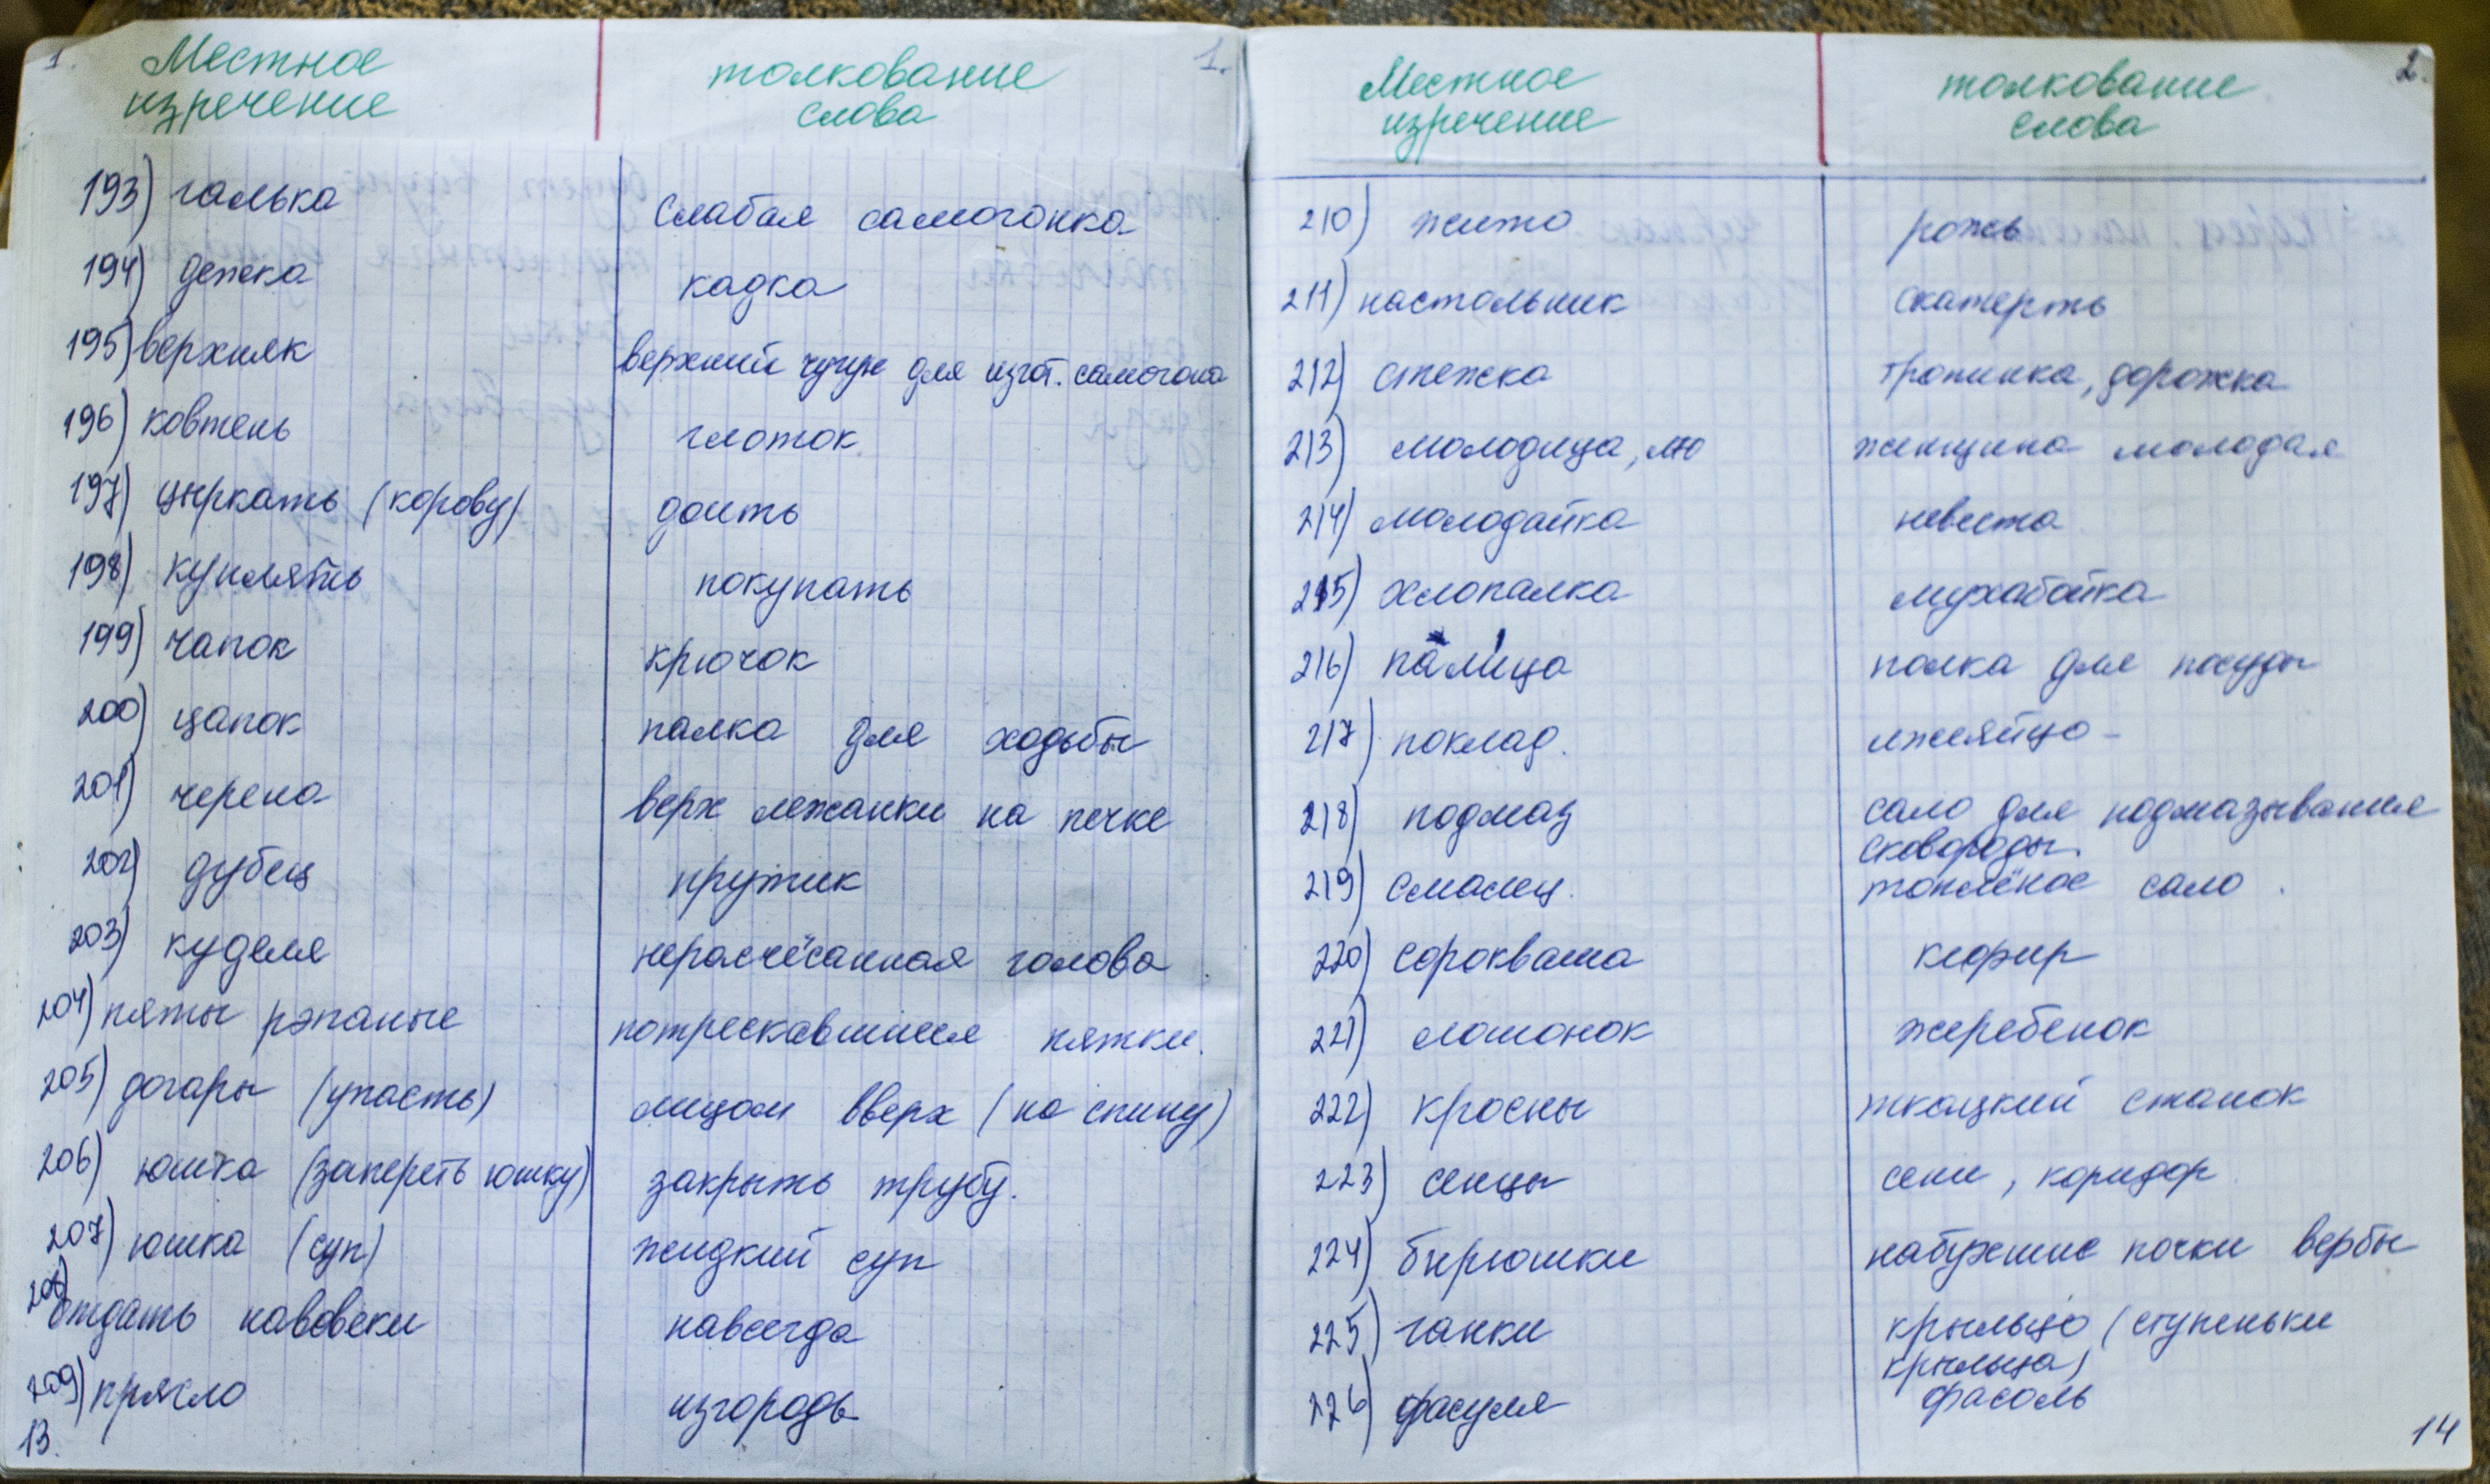 1.
Местное
изречение
толкование
слова
1.
193) галька слабая самогонка
194) дежка кадка
195) верхняк верхний чугун для изгот. самогона
196) ковтень глоток
197) цыркать (корову) доить
198) куплять покупать
199) чапок крючок
200) цапок палка для ходьбы
201) черена верх лежанки на печке
202) дубец прутик
203) куделя нерасчёсанная голова
204) пяты рэпаные потрескавшиеся пятки.
205) догары (упасть) лицом вверх (на спину)
206) юшка (запереть юшку) закрыть трубу.
207) юшка (суп) жидкий суп
208) отдать навовеки навсегда
209) прясло изгородь
13.
2.
Местное
изречение
толкование
слова
210) жито рожь
211) настольник скатерть
212) стежка тропинка, дорожка
213) молодица, лю женщина молодая
214) молодайка невеста
215) хлопалка мухабойка
216) палица полка для посуды
217) поклад. лжеяйцо -
218) подмаз сало для подмазывания
сковороды.
219) смалец. топлёное сало.
220) сорокваша кефир
221) лошонок жеребенок
222) кросны ткацкий станок
223) сенцы сени, коридор.
224) бырюшки набухшие почки вербы
225) ганки крыльцо (ступеньки
крыльца)
226) фасуля фасоль
14